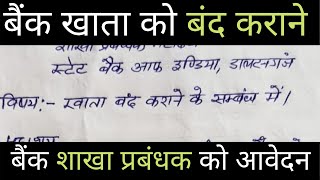 बैंक खाता को बंद कराने
शाखा प्रबंधक
स्टेट बैंक आफ इण्डिया, डालटनगंज
विषय:- खाता बंद कराने के सम्बंध में।
बैंक शाखा प्रबंधक को आवेदन